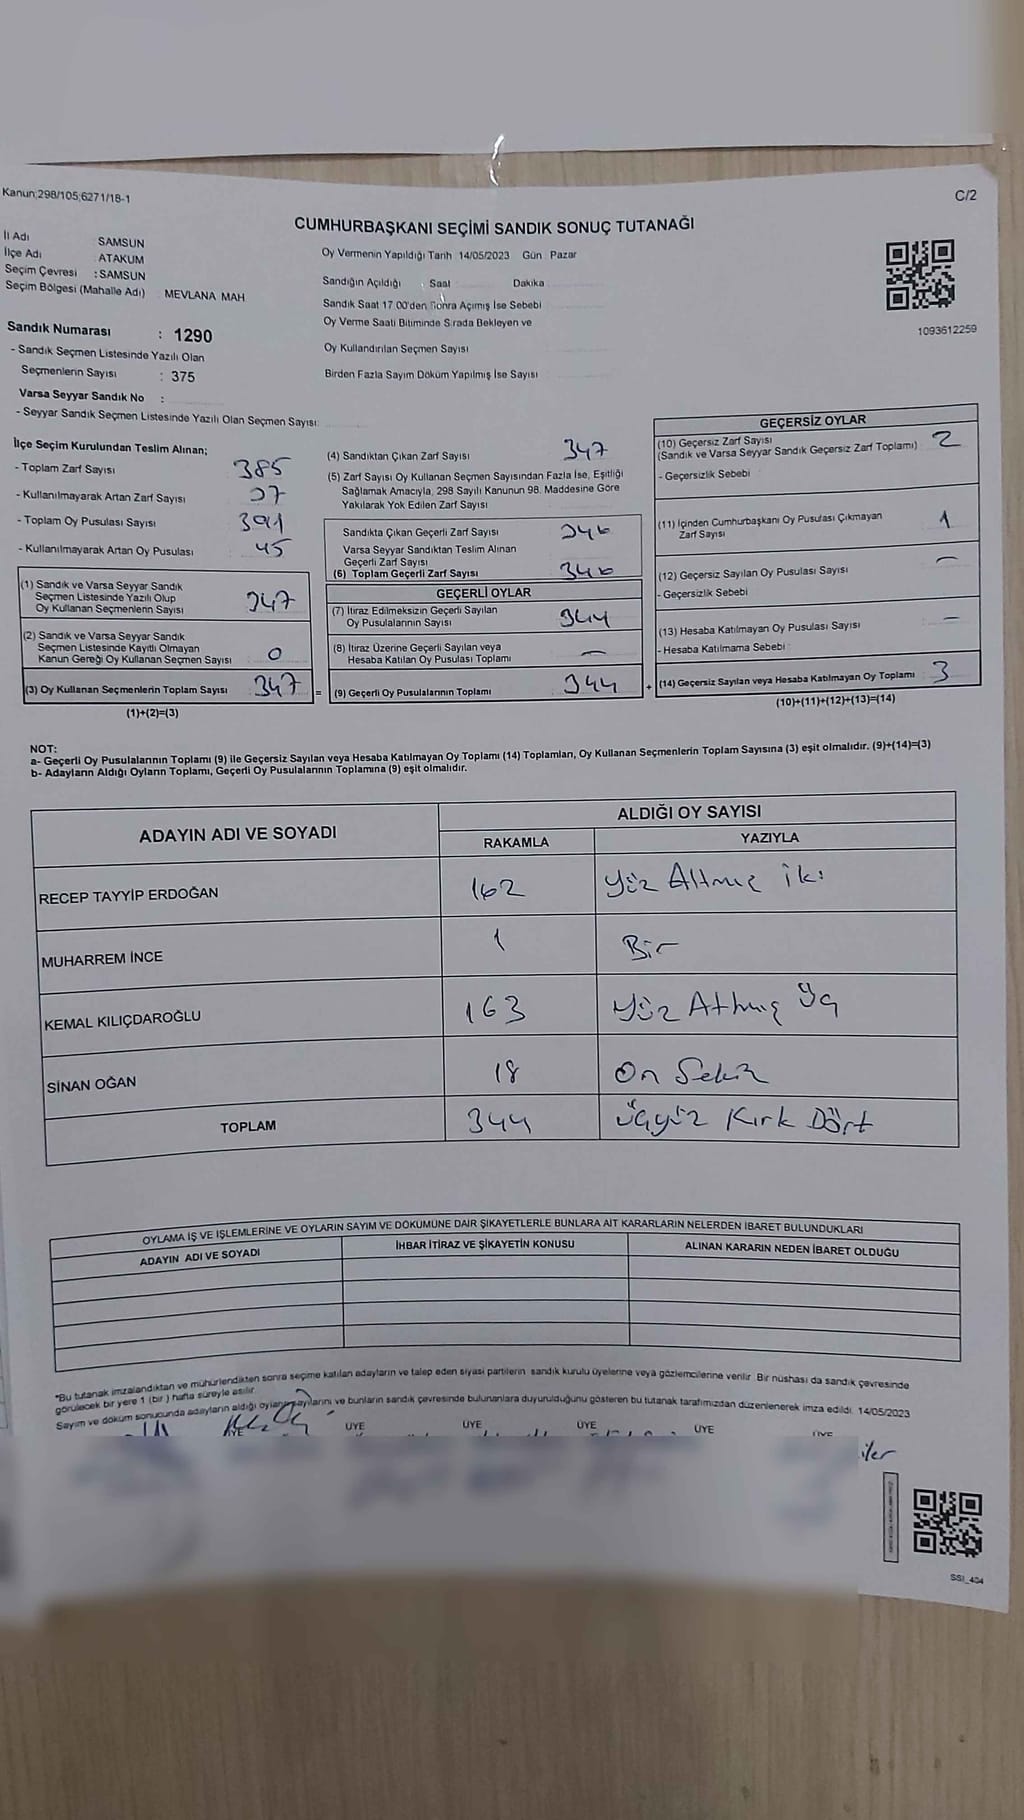 Kanun;298/105;6271/18-1
C/2
CUMHURBAŞKANI SEÇİMİ SANDIK SONUÇ TUTANAĞI
İl Adı : SAMSUN
İlçe Adı : ATAKUM
Seçim Çevresi : SAMSUN
Seçim Bölgesi (Mahalle Adı) MEVLANA MAH
Oy Vermenin Yapıldığı Tarih 14/05/2023 Gün Pazar
Sandığın Açıldığı Saat Dakika
Sandık Saat 17.00'den Sonra Açımış İse Sebebi
Oy Verme Saati Bitiminde Sırada Bekleyen ve
Oy Kullandırılan Seçmen Sayısı
Birden Fazla Sayım Döküm Yapılmış İse Sayısı
1093612259
Sandık Numarası : 1290
- Sandık Seçmen Listesinde Yazılı Olan
Seçmenlerin Sayısı : 375
Varsa Seyyar Sandık No :
- Seyyar Sandık Seçmen Listesinde Yazılı Olan Seçmen Sayısı:
İlçe Seçim Kurulundan Teslim Alınan;
- Toplam Zarf Sayısı 385
- Kullanılmayarak Artan Zarf Sayısı 37
- Toplam Oy Pusulası Sayısı 391
- Kullanılmayarak Artan Oy Pusulası 45
(1) Sandık ve Varsa Seyyar Sandık
Seçmen Listesinde Yazılı Olup
Oy Kullanan Seçmenlerin Sayısı 347
(2) Sandık ve Varsa Seyyar Sandık
Seçmen Listesinde Kayıtlı Olmayan
Kanun Gereği Oy Kullanan Seçmen Sayısı 0
(3) Oy Kullanan Seçmenlerin Toplam Sayısı 347 =
(1)+(2)=(3)
(4) Sandıktan Çıkan Zarf Sayısı 347
(5) Zarf Sayısı Oy Kullanan Seçmen Sayısından Fazla İse, Eşitliği
Sağlamak Amacıyla, 298 Sayılı Kanunun 98. Maddesine Göre
Yakılarak Yok Edilen Zarf Sayısı
Sandıkta Çıkan Geçerli Zarf Sayısı 346
Varsa Seyyar Sandıktan Teslim Alınan
Geçerli Zarf Sayısı
(6) Toplam Geçerli Zarf Sayısı 346
GEÇERLİ OYLAR
(7) İtiraz Edilmeksizin Geçerli Sayılan
Oy Pusulalarının Sayısı 344
(8) İtiraz Üzerine Geçerli Sayılan veya
Hesaba Katılan Oy Pusulası Toplamı —
(9) Geçerli Oy Pusulalarının Toplamı 344 +
GEÇERSİZ OYLAR
(10) Geçersiz Zarf Sayısı
(Sandık ve Varsa Seyyar Sandık Geçersiz Zarf Toplamı) 2
- Geçersizlik Sebebi
(11) İçinden Cumhurbaşkanı Oy Pusulası Çıkmayan
Zarf Sayısı 1
(12) Geçersiz Sayılan Oy Pusulası Sayısı —
- Geçersizlik Sebebi
(13) Hesaba Katılmayan Oy Pusulası Sayısı —
- Hesaba Katılmama Sebebi :
(14) Geçersiz Sayılan veya Hesaba Katılmayan Oy Toplamı 3
(10)+(11)+(12)+(13)=(14)
NOT:
a- Geçerli Oy Pusulalarının Toplamı (9) ile Geçersiz Sayılan veya Hesaba Katılmayan Oy Toplamı (14) Toplamları, Oy Kullanan Seçmenlerin Toplam Sayısına (3) eşit olmalıdır. (9)+(14)=(3)
b- Adayların Aldığı Oyların Toplamı, Geçerli Oy Pusulalarının Toplamına (9) eşit olmalıdır.
ADAYIN ADI VE SOYADI
ALDIĞI OY SAYISI
RAKAMLA YAZIYLA
RECEP TAYYİP ERDOĞAN 162 Yüz Altmış iki
MUHARREM İNCE 1 Bir
KEMAL KILIÇDAROĞLU 163 Yüz Atmış Üç
SİNAN OĞAN 18 On Sekiz
TOPLAM 344 Üçyüz Kırk Dört
OYLAMA İŞ VE İŞLEMLERİNE VE OYLARIN SAYIM VE DÖKÜMÜNE DAİR ŞİKAYETLERLE BUNLARA AİT KARARLARIN NELERDEN İBARET BULUNDUKLARI
ADAYIN ADI VE SOYADI İHBAR İTİRAZ VE ŞİKAYETİN KONUSU ALINAN KARARIN NEDEN İBARET OLDUĞU
*Bu tutanak imzalandıktan ve mühürlendikten sonra seçime katılan adayların ve talep eden siyasi partilerin sandık kurulu üyelerine veya gözlemcilerine verilir. Bir nüshası da sandık çevresinde
görülecek bir yere 1 (bir ) hafta süreyle asılır.
Sayım ve döküm sonucunda adayların aldığı oyların sayılarını ve bunların sandık çevresinde bulunanlara duyurulduğunu gösteren bu tutanak tarafımızdan düzenlenerek imza edildi. 14/05/2023
ÜYE ÜYE ÜYE ÜYE ÜYE
SSI_404